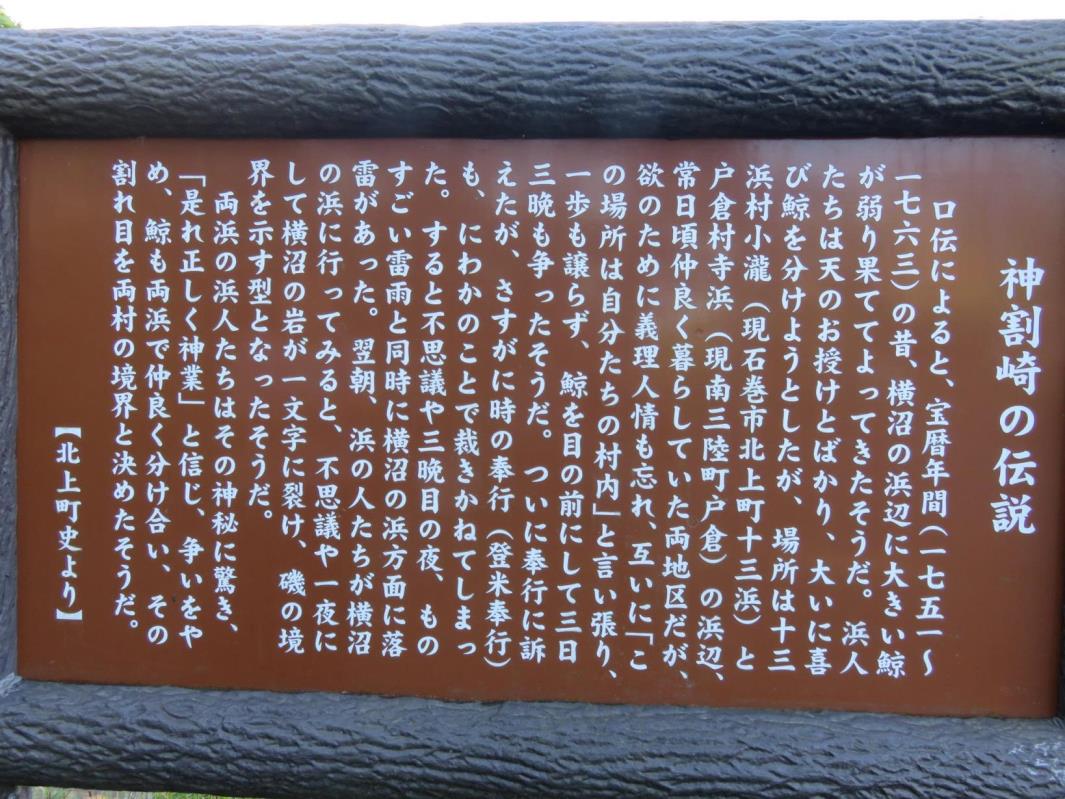 神割崎の伝説
口伝によると、宝暦年間（一七五一〜
一七六三）の昔、横沼の浜辺に大きい鯨
が弱り果ててよってきたそうだ。浜人
たちは天のお授けとばかり、大いに喜
び鯨を分けようとしたが、場所は十三
浜村小瀧（現石巻市北上町十三浜）と
戸倉村寺浜（現南三陸町戸倉）の浜辺、
常日頃仲良く暮らしていた両地区だが、
欲のために義理人情も忘れ、互いに「こ
の場所は自分たちの村内」と言い張り、
一歩も譲らず、鯨を目の前にして三日
三晩も争ったそうだ。ついに奉行に訴
えたが、さすがに時の奉行（登米奉行）
も、にわかのことで裁きかねてしまっ
た。すると不思議や三晩目の夜、もの
すごい雷雨と同時に横沼の浜方面に落
雷があった。翌朝、浜の人たちが横沼
の浜に行ってみると、不思議や一夜に
して横沼の岩が一文字に裂け、磯の境
界を示す型となったそうだ。
両浜の浜人たちはその神秘に驚き、
「是れ正しく神業」と信じ、争いをや
め、鯨も両浜で仲良く分け合い、その
割れ目を両村の境界と決めたそうだ。
【北上町史より】